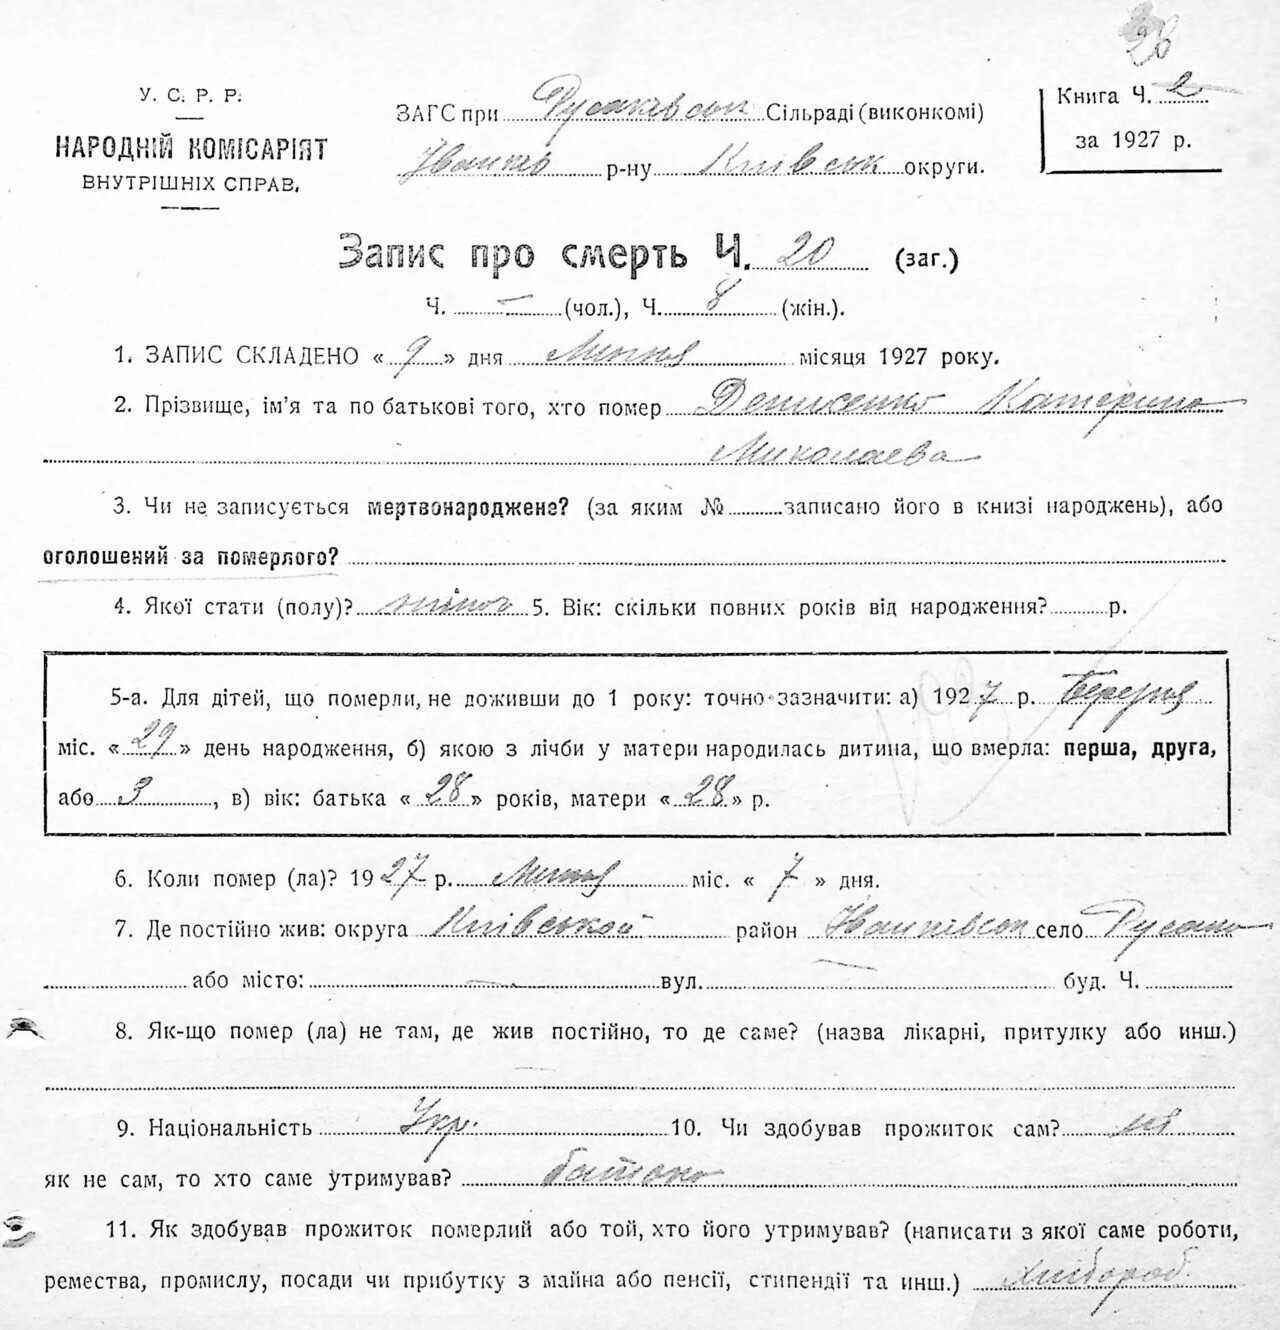 38
У. С. Р. Р.
НАРОДНІЙ КОМІСАРІЯТ
ВНУТРІШНІХ СПРАВ.
ЗАГС при Русаківськ Сільраді (виконкомі)
Іванків р-ну Київськ округи.
Книга Ч. 2
за 1927 р.
Запис про смерть Ч. 20 (заг.)
Ч. — (чол.), Ч. 8 (жін.).
1. ЗАПИС СКЛАДЕНО « 9 » дня Липня місяця 1927 року.
2. Прізвище, ім'я та по батькові того, хто помер Денисенко Катерина
Миколаєва
3. Чи не записується мертвонароджене? (за яким № записано його в книзі народжень), або
оголошений за померлого?
4. Якої стати (полу)? жіноч 5. Вік: скільки повних років від народження? р.
5-а. Для дітей, що померли, не доживши до 1 року: точно зазначити: а) 1927 р. Березня
міс. « 29 » день народження, б) якою з лічби у матери народилась дитина, що вмерла: перша, друга,
або 3, в) вік: батька « 28 » років, матери « 28 » р.
6. Коли помер (ла)? 1927 р. Липня міс. « 7 » дня.
7. Де постійно жив: округа Київській район Іванківськ село Русаки
або місто: — вул. — буд. Ч.
8. Як-що помер (ла) не там, де жив постійно, то де саме? (назва лікарні, притулку або инш.)
9. Національність Укр. 10. Чи здобував прожиток сам? ні
як не сам, то хто саме утримував? батько
11. Як здобував прожиток померлий або той, хто його утримував? (написати з якої саме роботи,
ремества, промислу, посади чи прибутку з майна або пенсії, стипендії та инш.) Хлібороб.